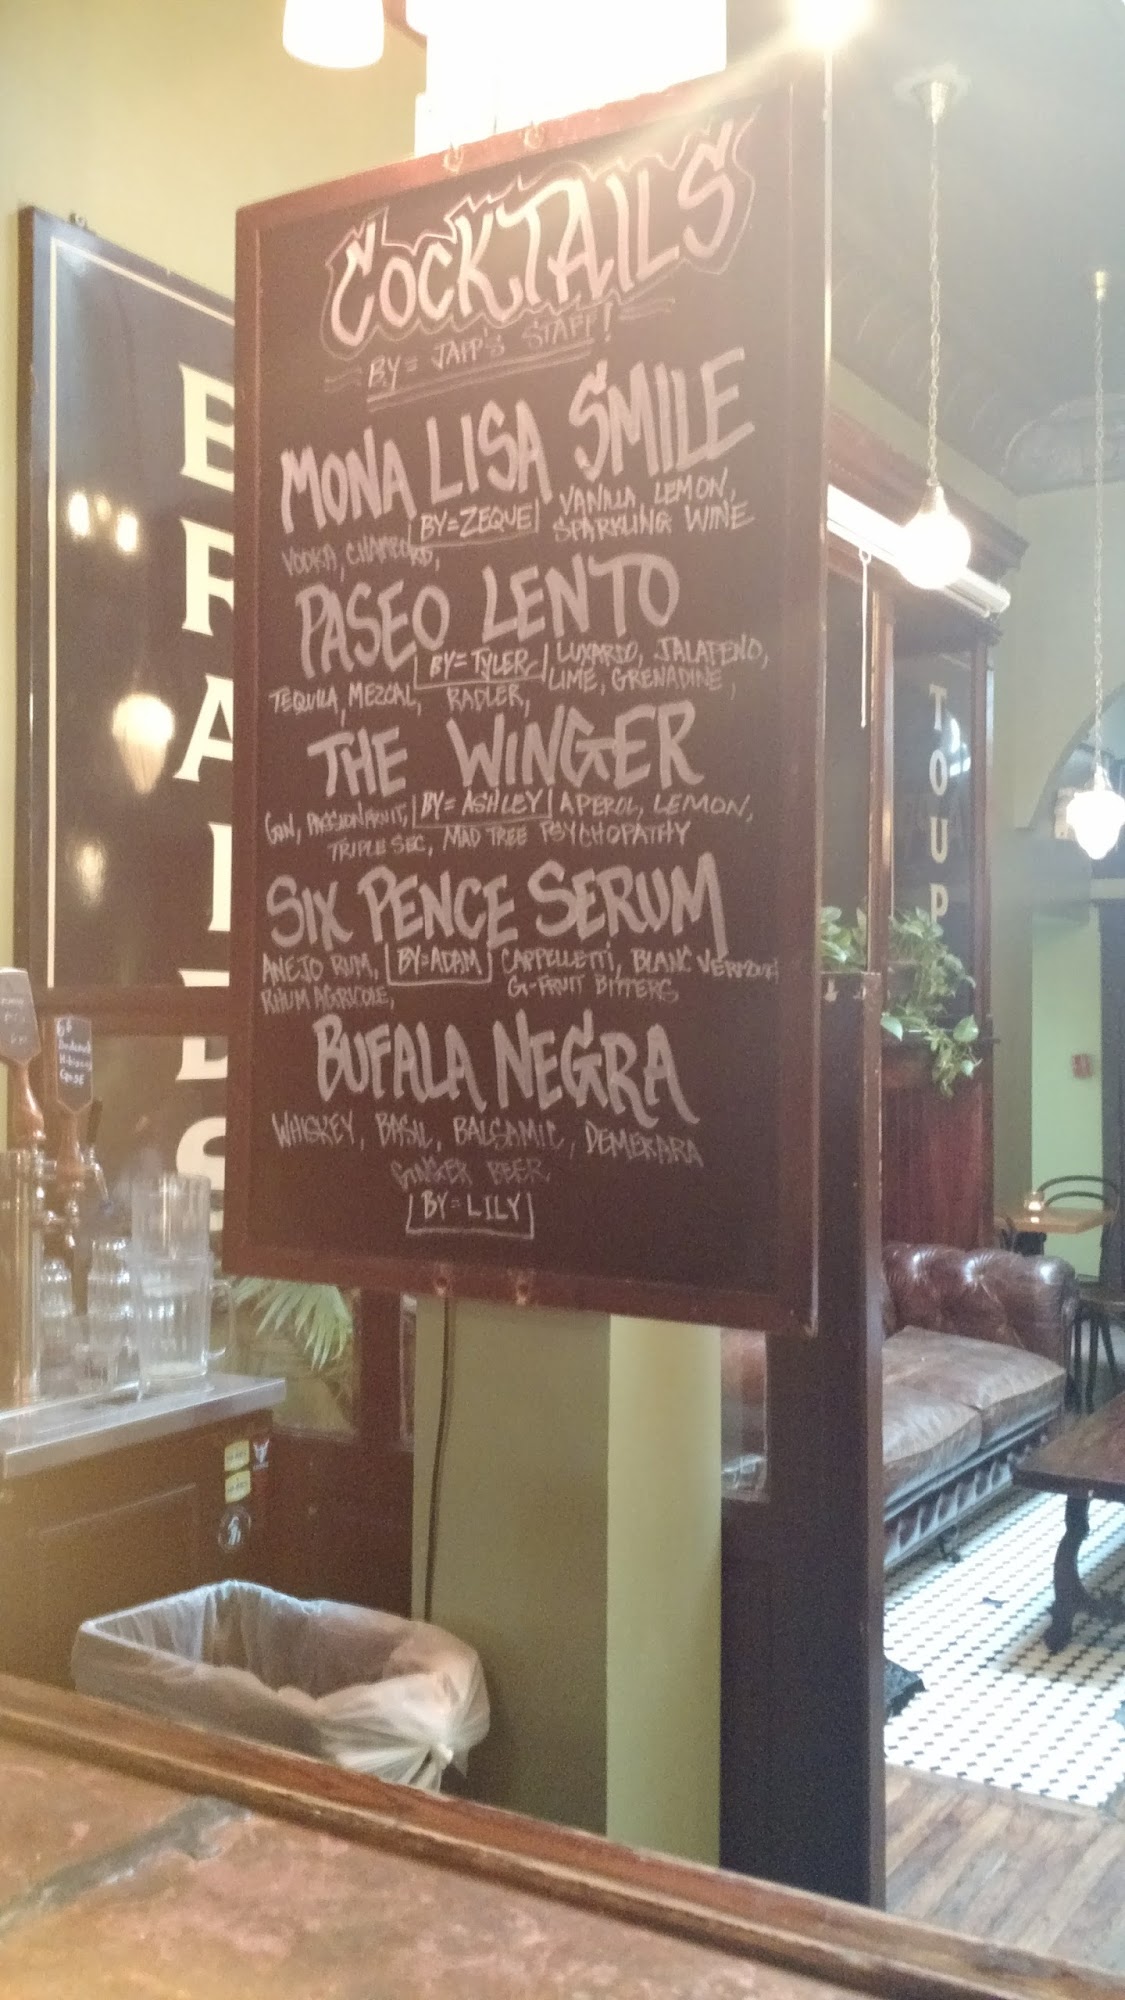 COCKTAILS
BY = JAPP'S STAFF!
MONA LISA SMILE
BY = ZEQUE
VODKA, CHAMBORD,
VANILLA, LEMON,
SPARKLING WINE
PASEO LENTO
BY = TYLER
TEQUILA, MEZCAL, RADLER,
LUXARDO, JALAPENO,
LIME, GRENADINE,
THE WINGER
GIN, PASSIONFRUIT, BY = ASHLEY APEROL, LEMON,
TRIPLE SEC, MAD TREE PSYCHOPATHY
SIX PENCE SERUM
ANEJO RUM, BY = ADAM CAPPELLETTI, BLANC VERMOUTH
RHUM AGRICOLE, G-FRUIT BITTERS
BUFALA NEGRA
WHISKEY, BASIL, BALSAMIC, DEMERARA
GINGER BEER
BY = LILY
BRAIDS
TOUP